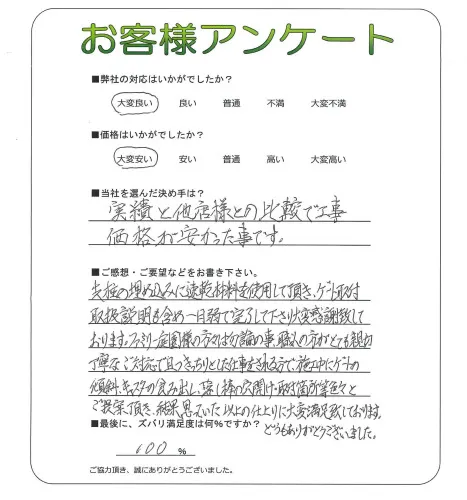 お客様アンケート
■弊社の対応はいかがでしたか？
大変良い 良い 普通 不満 大変不満
■価格はいかがでしたか？
大変安い 安い 普通 高い 大変高い
■当社を選んだ決め手は？
実績と他店様との比較で工事
価格が安かった事です。
■ご感想・ご要望などをお書き下さい。
支柱の埋め込みに速乾材料を使用して頂き、ゲート取付
取扱説明も含め一日弱で完了して下さり大変感謝致して
おります。ファミリー庭園様の方々は勿論の事、職人の方がとても親切
丁寧なご対応で且つきっちりとした仕事をされる方で、施工中にゲートの
傾斜、キャスターの食み出し、落し棒の穴開け・取付箇所等色々と
ご提案頂き、結果思っていた以上の仕上りに大変満足致しております。
どうもありがとうございました。
■最後に、ズバリ満足度は何%ですか？
100 %
ご協力頂き、誠にありがとうございました。